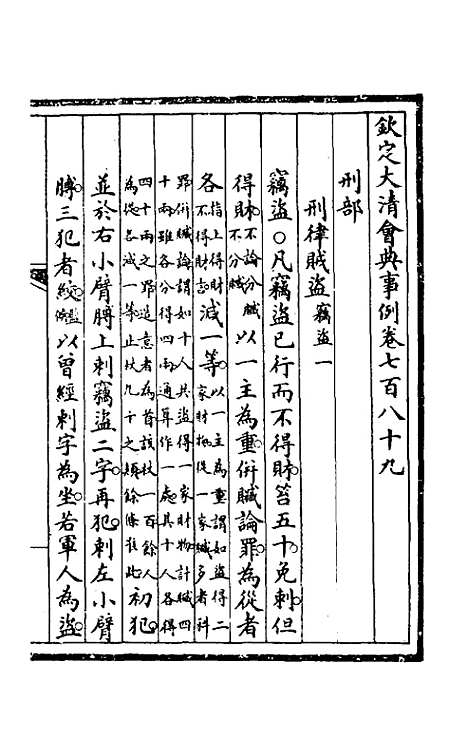 欽定大清會典事例卷七百八十九
刑部
刑律賊盜竊盜一
竊盜○凡竊盜已行而不得財笞五十免刺但
得財不論分贓不分贓以一主為重併贓論罪為從者
各指上得財不得財言減一等以一主為重謂如盜得二家財物從一家贓多者科
罪併贓論謂如十人共盜得一家財物計贓四十兩雖各分得四兩通算作一處其十人各得
四十兩之罪造意者為首該杖一百餘人為從各減一等止杖九十之類餘條准此初犯
並於右小臂膊上刺竊盜二字再犯刺左小臂
膊三犯者絞監候以曾經刺字為坐若軍人為盜